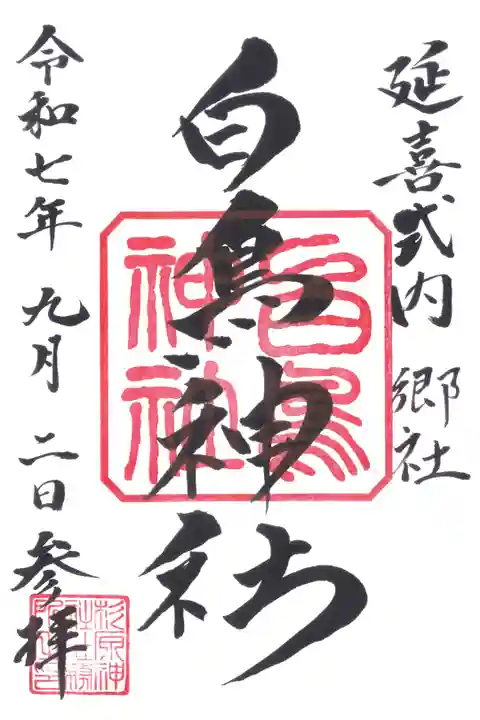 延喜式内 郷社
白鳥神社
白鳥
神社
令和七年 九月 二日 参拝
杉原神
社社務
所之印